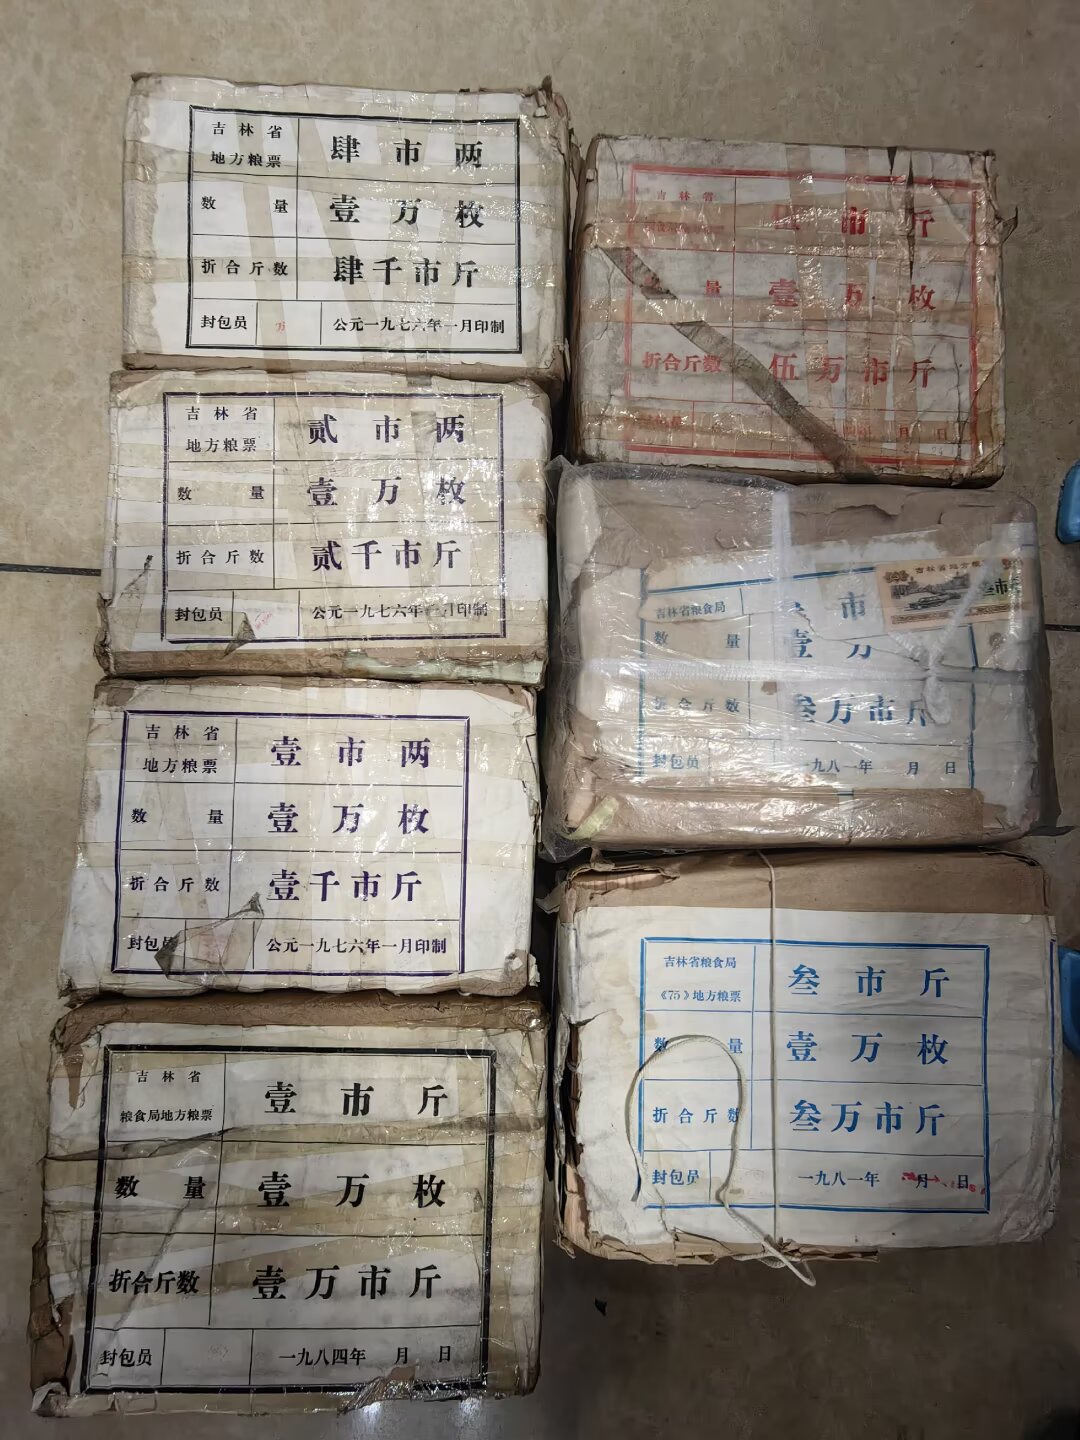 吉林省
地方粮票
肆市两
数量
壹万枚
折合斤数
肆千市斤
封包员
万
公元一九七六年一月印制
吉林省
地方粮票
贰市两
数量
壹万枚
折合斤数
贰千市斤
封包员
公元一九七六年一月印制
吉林省
地方粮票
壹市两
数量
壹万枚
折合斤数
壹千市斤
封包员
公元一九七六年一月印制
吉林省
粮食局地方粮票
壹市斤
数量
壹万枚
折合斤数
壹万市斤
封包员
一九八四年 月 日
吉林省
伍市斤
量
壹万枚
折合斤数
伍万市斤
月 日
吉林省粮食局
叁市
数量
壹万
折合斤数
叁万市斤
封包员
一九八一年 月 日
吉林省地方粮
叁市
吉林省粮食局
《75》地方粮票
叁市斤
数量
壹万枚
折合斤数
叁万市斤
封包员
一九八一年 月 日